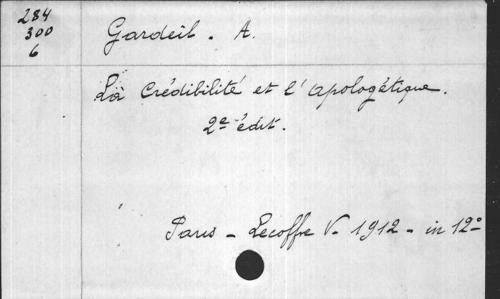 284
300
6
Gardeil. A.
La Crédibilité et l'apologétique.
2e édit.
Paris - Lecoffre V. 1912 - in 12°